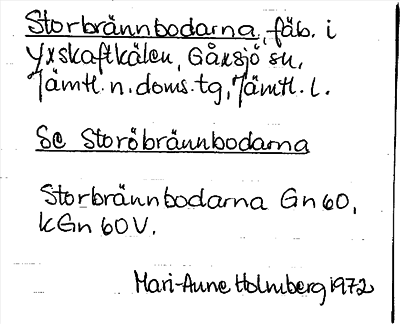 Storbrännbodarna, fäb. i
Yxskaftkälen, Gåxsjö sn,
Jämtl. n. doms. tg, Jämtl. l.
Se Storöbrännbodarna
Storbrännbodarna Gn 60,
kGn 60 V.
Mari-Anne Holmberg 1972